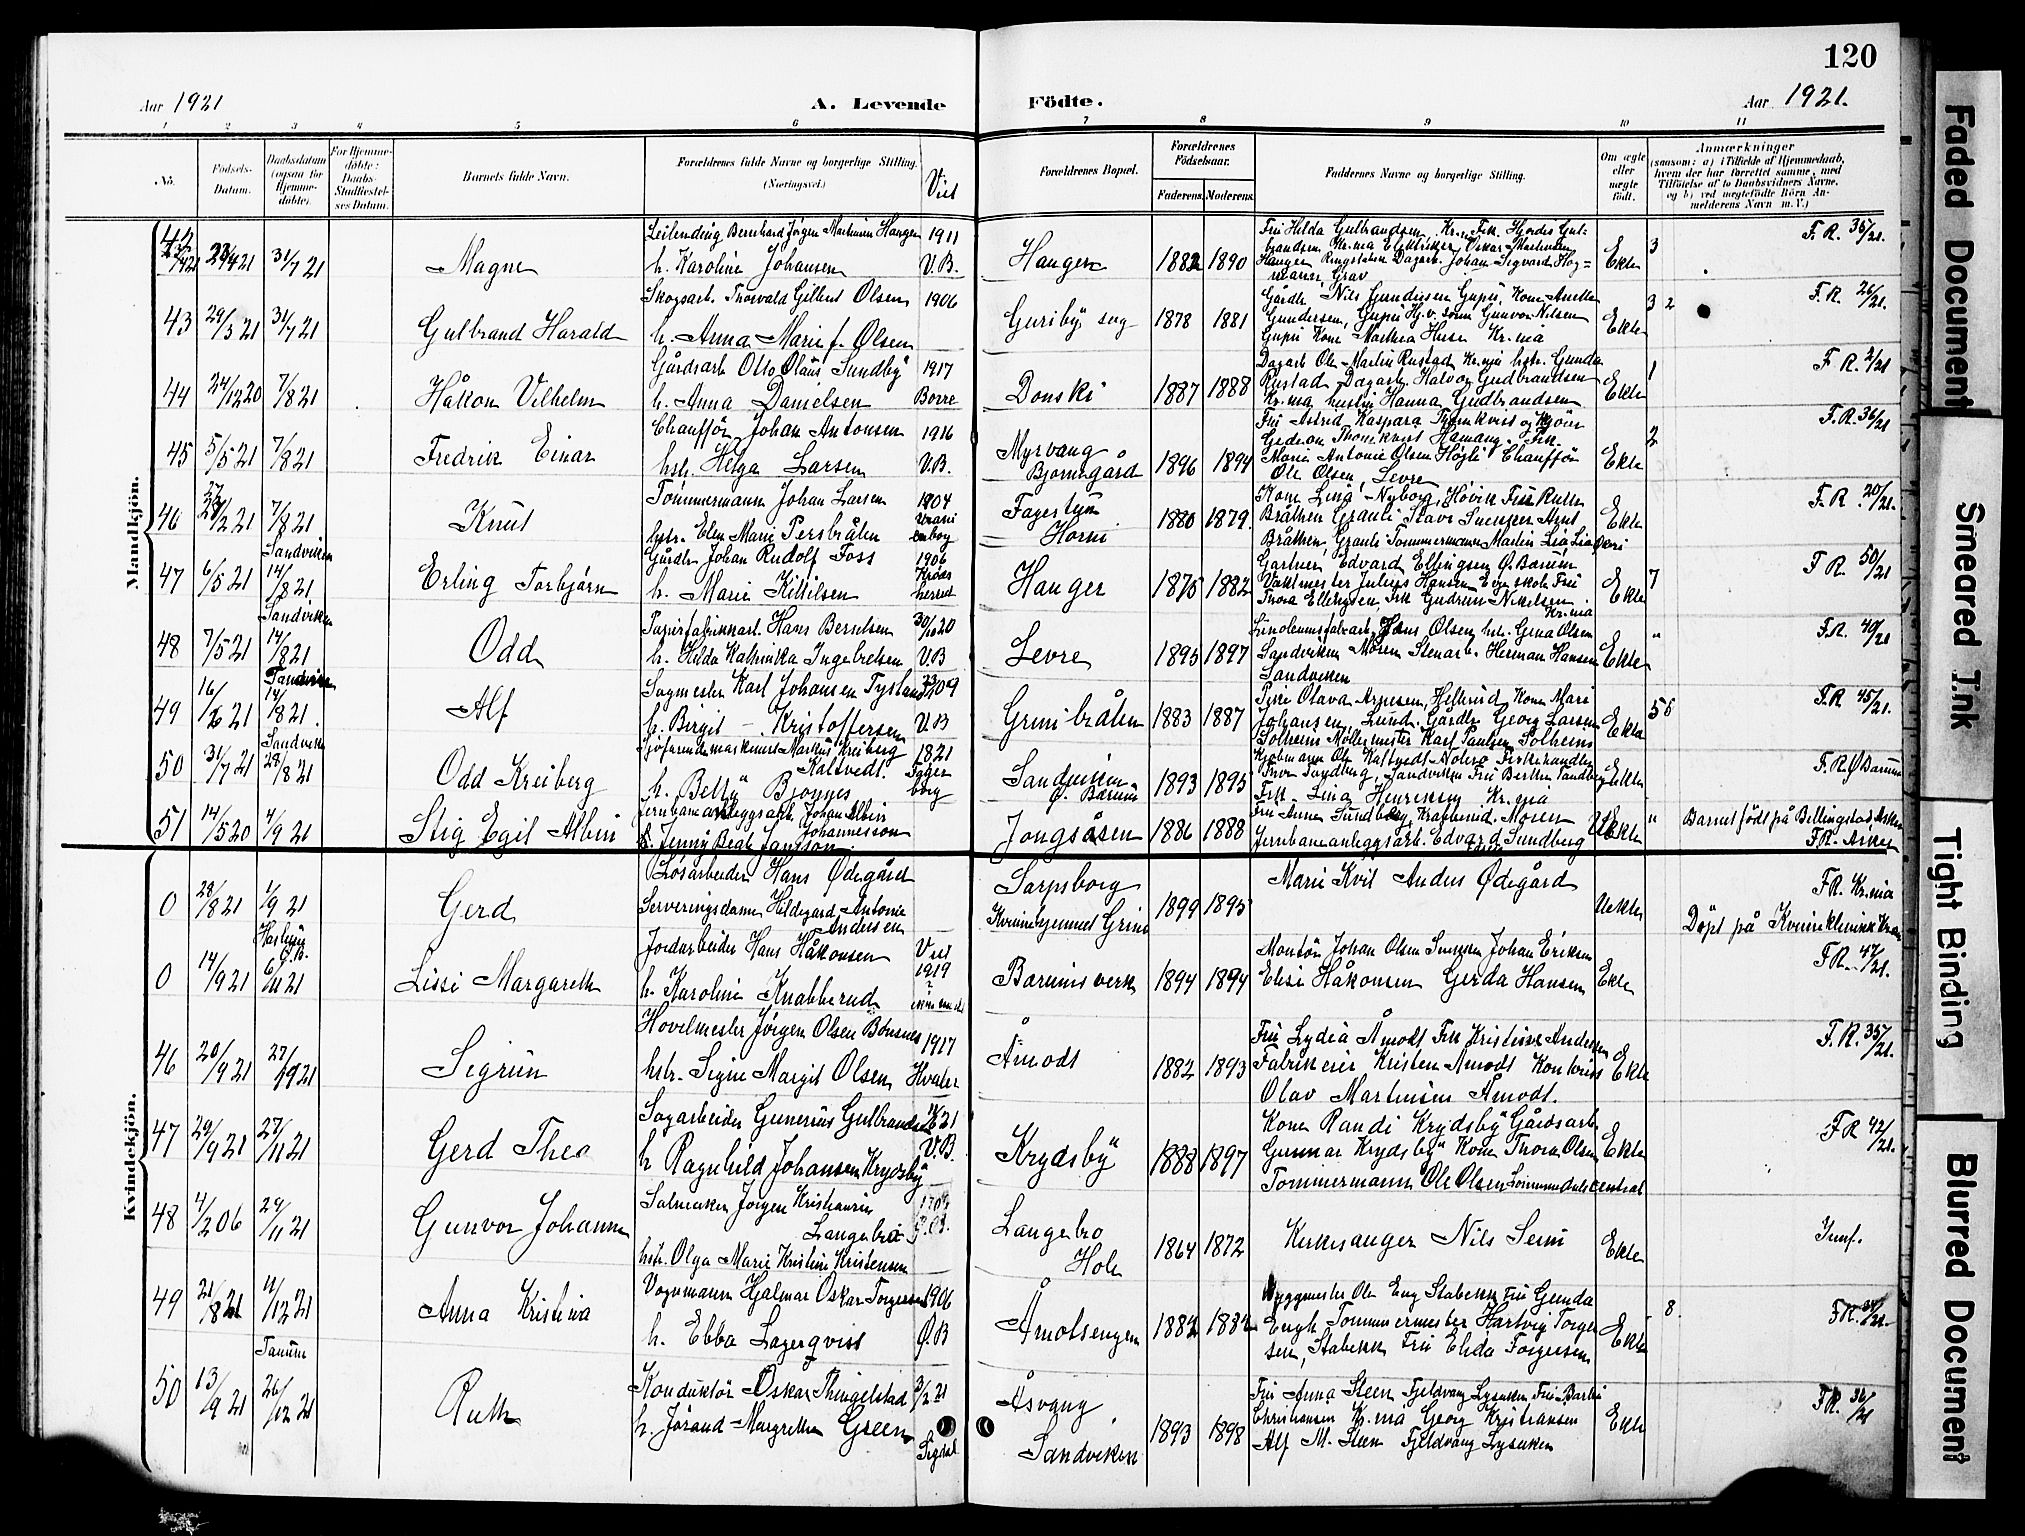 120
Aar 1921
A. Levende
Födte.
Aar 1921.
1 2 3 4 5 6 7 8 9 10 11
No.
Födsels-Datum.
Daabsdatum (ogsaa for Hjemmedöbte).
For Hjemmedöbte: Daabs-Stadfæstelses Datum.
Barnets fulde Navn.
Forældrenes fulde Navne og borgerlige Stilling. (Næringsvei.)
Viet
Forældrenes Bopæl.
Forældrenes Födselsaar.
Faderens. Moderens.
Faddernes Navne og borgerlige Stilling.
Om ægte eller uægte födt.
Anmærkninger
(saasom: a) i Tilfælde af Hjemmedaab, hvem der har forrettet samme, med Tilföielse af to Daabsvidners Navne, og b) ved uægtefödte Börn Anmelderens Navn m. V.)
Mandkjön.
42 23/4 21 31/7 21 Magne
Bernhard Jörgen Martinius Hanger 1911
h. Karoline Johansen V.B.
Hanger 1882 1890
Fru Hilda Gulbrandsen Kr.ia Frk. Hordis Gulbrandsen Kr.ia Elektriker Oskar Martinsen
Hanger Ringstabæk Dagarb. Johan Sigvard Hogmann, Grav
Ekte 3 F.R. 35/21.
43 29/3 21 31/7 21 Gulbrand Harald
Skogsarb. Thorvald Gilbert Olsen 1906
h. Anna Marie f. Olsen
Guriby sag 1878 1881
Gårdb. Nils Gundersen Gupu, Kone Anette
Gundersen, Gupu Hj.v. sönn Gunvor Nilsen
Gupu Kone Mathea Kr.ia
Ekte 3 2 F.R. 26/21.
44 24/12 20 7/8 21 Håkon Vilhelm
Gårdsarb Otto Olaus Sundby 1917
h. Anna Danielsen Borre
Donski 1887 1888
Dagarb Ole Martin Rustad Kr.ia hstr. Gunda
Rustad Dagarb. Halvor Gudbrandsen
Kr.ia hustru Hanna Gudbrandsen
Ekte 1 F.R. 2/21
45 5/5 21 7/8 21 Fredrik Einar
Chaufför Johan Antonsen 1916
hstr. Helga Larsen V.B.
Myrvang
Bjornegård 1896 1894
Fru Astrid Kaspara Thornkvist og Kjöm
Gedeon Thornkvist Hamang. Frk.
Marie Antonie Olsen Högli Chaufför
Ole Olsen, Levre
Ekte 2 F.R. 36/21
46 27/2 21 7/8 21 Knut
Tömmermann Johan Larsen 1904
hstr. Elen Marie Persbråten
Fagertun
Horni 1880 1879.
Kone Lina Nyborg, Hövik Fru Ruth
Bråthen Granli Stava Svenger Arnt
Bråthen, Granli Tömmermann Martin Lia
Ekte F.R. 20/21.
47 6/5 21 Sandviken 14/8 21 Erling Torbjörn
Gårdbr Johan Rudolf Foss 1906
h. Marie Kittilsen Krödsherred
Hanger 1875 1882
Gartner Edvard Ellingsen Ö. Bærum
Vaktmester Julius Hansen Evje skole Fru
Thora Ellingsen, Frk Gudrun Nikelsen Kr.ia
Ekte 7 F.R. 50/21
48 7/5 21 Sandviken 14/8 21 Odd
Papirfabrikkarb. Hans Berntsen 30/10 20
h. Hilda Kathinka Ingebretsen V.B
Levre 1895 1897
Linoleumsfabarb. Hans Olsen, hstr. Gina Olsen
Sandviken Mosen Stenarb. Herman Hansen
Sandviken
Ekte " F.R. 40/21
49 16/6 21 Sandviken 14/8 21. Alf
Sagmester Karl Johansen Tysland 23/10 09
h. Birgit - Kristoffersen V.B
Grinibråten 1883 1887
Pike Olava Arnesen, Hellerud, Kone Mari
Johansen, Lund. Gårdbr Georg Larsen
Solheim Möllermester Karl Paulsen Solheim
Ekte 5 F.R 45/21.
50 31/7 21 Sandviken 28/8 21 Odd Kreiberg
Sjöfarende maskinist Markus Kreiberg Kaltvedt. 1821
h. Betty Bjonnes
Sandviken
Ö. Bærum 1893 1895
Kjöbmann Ole Kaltvedt Holmö Fiskehandler
Thor Sandberg, Sandviken Fru Berthe Sandberg
Frk. Lina Henriksen Kr.ia
Ekte F.R. Ö Bærum
51 14/5 20 4/9 21 Stig Egil Albin
Jernbaneanleggsarb. Johan Albin Johannesson
Jenny Beate Jansson
Jongsåsen 1886 1888
Fru Anna Sundberg, Krapkerud. Mosen
Jernbaneanleggsarb. Edvard Sundberg
Uekte " Barnet födt på Billingstad, Asker
F.R. Asker
Kvindekjön.
0 28/8 21 1/9 21 Gerd
Lösarbeider Hans Ödegård
Serveringsdame Hildegard Antonie Andersen
Sarpsborg
Kvinnehjemmet Grini 1899 1895
Marie Kvil Anders Ödegård
Uekte F.R. Kr.ia
Döpt på Kvinneklinikk Kr.ia
0 14/9 21 Haslum Ö.B. 6/11 21 Lissi Margareth
Jordarbeider Hans Håkonsen Viet 1919
h. Karoline Knabberud
Bærums verk 1894 1894
Montör Johan Olsen Johan Eriksen
Elise Håkonsen Gerda Hansen
Ekte F.R. 47/21.
46 20/9 21 27/9 21 Sigrun
Hovelmester Jörgen Olsen Bönsnes 1917
hstr. Signe Margit Olsen Hvaler
Åmodt 1882 1893
Fru Lydia Åmodt Frk Kristine Andersen
Fabrikeier Kristen Åmodt Kontorist
Olav Martinsen Åmodt.
Ekte F.R. 35/21.
47 29/9 21 27/11 21 Gerd Thea
Sagarbeider Gunerius Gulbrandsen 21
h Ragnhild Johansen Krydsby V.B.
Krydsby 1888 1897
Kone Randi Krydsby Gårdsarb
Gunnar Krydsby Kone Thora Olsen
Tömmermann Ole Olsen Lommedalscentral
Ekte F.R 42/21.
48 4/2 06 29/11 21 Gunvor Johanne
Salmaker Jörgen Kristiansen Langebro
hstr. Olga Marie Kristine Kristensen
Langebro
Hole 1864 1872
Kirkesanger Nils Semi
Ekte Jmf.
49 21/8 21 11/12 21 Anna Kristina
Vognmann Hjalmar Oskar Torgersen 1906
h. Ebba Lagerqvist Ö.B
Åmotsengen 1882 1882
Byggmester Ole Eng Stabekk Fru Gunda
Engh Tömmermester Hartvig Torgersen, Stabekk Fru Elida Torgersen
Ekte 8 F.R. 34/21.
50 13/9 21 Tanum 26/12 21 Ruth
Konduktör Oskar Thingelstad 3/2 21
h. Jörand Margrethe Green Sigdal
Åsvang
Sandviken 1893 1898
Fru Anna Steen Fjeldvang Lysaker Fru Barbro
Christiansen Kr.ia Georg Kristiansen
Alf M. Steen Fjeldvang Lysaker
Ekte F.R. 36/21
Faded Document
Smeared Ink
Tight Binding
Blurred Document